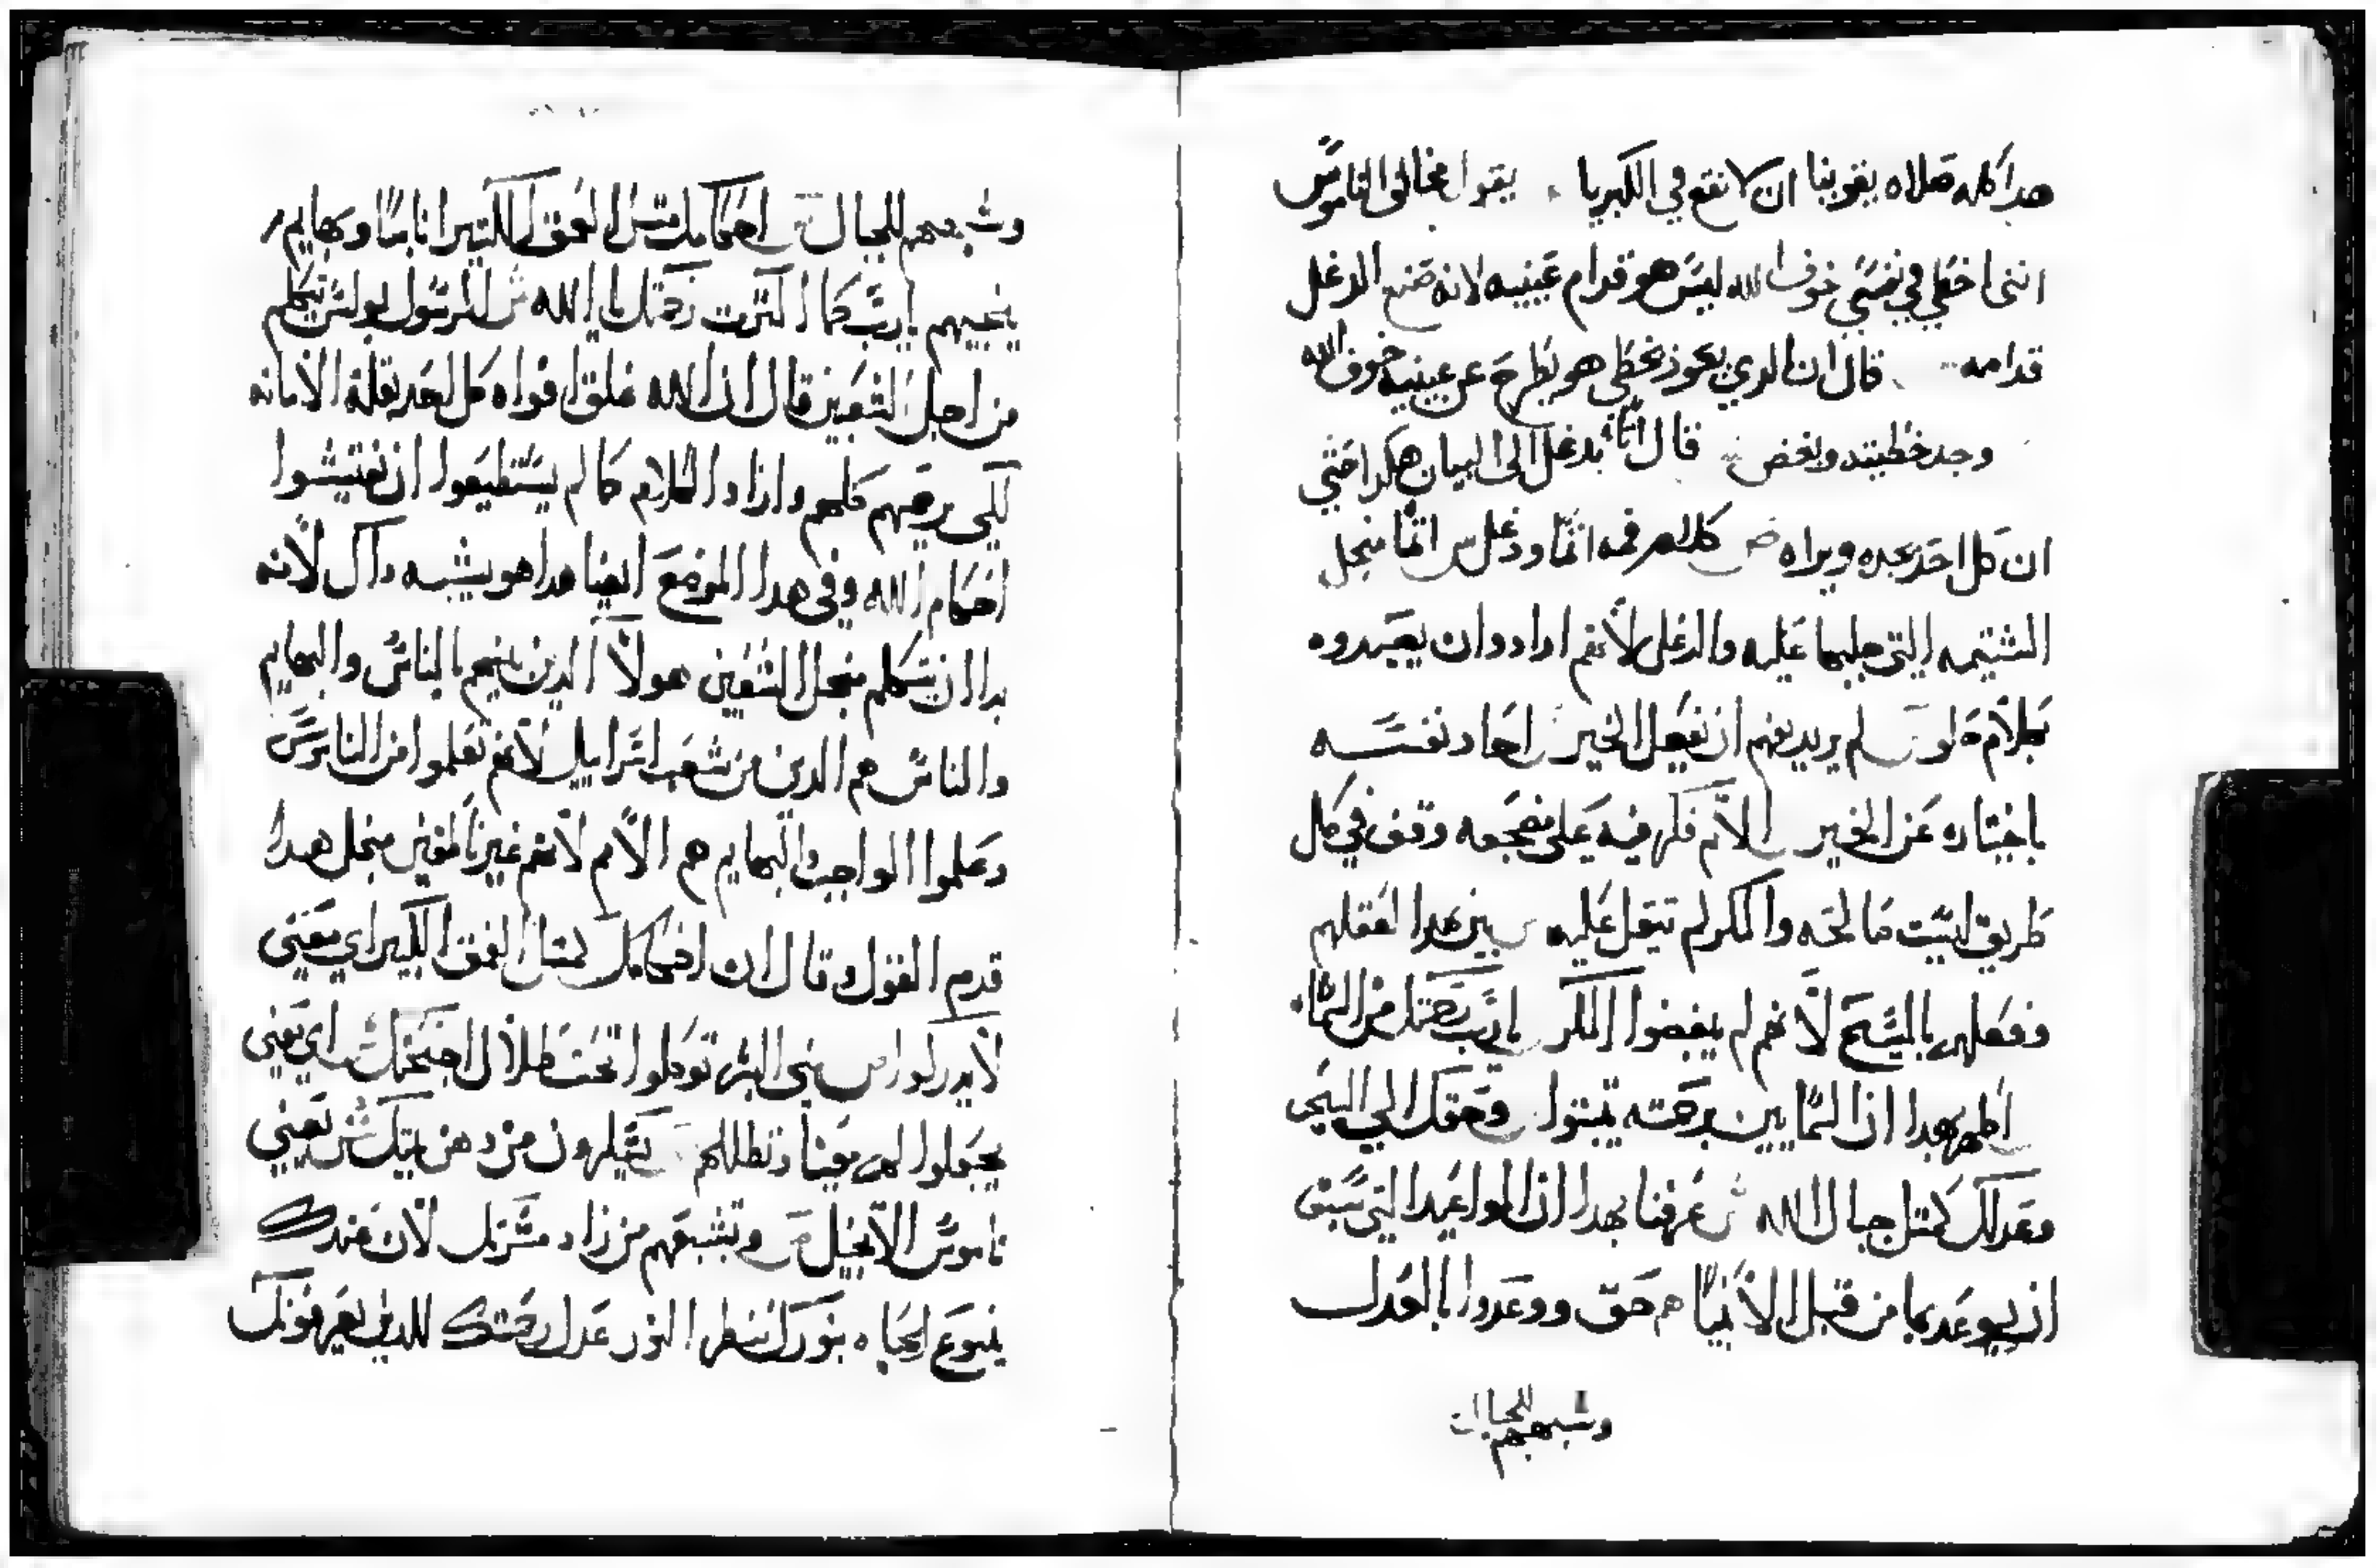 هدا كله صلاه يقوينا ان لا نقع في الكبريا يقول مخالف الناموس
انني اخطي في نفسي خوف الله ليس هو قدام عينيه لانه صنع الدغل
قدامه قال ان الدي يعود يخطي هو يطرح عن عينيه خوف الله
وجد خطيته وبغض قال بدغل الى البيان هكدا اختي
ان كل احد يجده ويراه كلام فمه اتما ودغل اتما منجل
الشتيمه التي جلبها عليه والدغل لانهم ارادوان يصيدوه
بكلامه لم يريد يفهم ان يفعل الخير احاد نفسه
باختياره عن الخير الاثم فكر فيه على مضجعه وقف في كل
طريق ليست صالحه والمكر لم تيقل عليه بين هدا لفعلهم
وفعلهم بالمسيح لانهم لم يبغضوا المكر يارب رحمتك من السما
اظهر بهدا ان السمايين برحمته يثبتوا وحقك الي السحب
وعدلك كمتل جبال الله عرفنا بهدا ان المواعيدا التي سبق
ان يوعد بها من قبل الانبيا هم حق ووعدوا بالعدل
وشبههم للجبال
وشبههم للجبال احكامك متل العمق الكتير اناسا وبهايم
يحييهم يارب كما اكترت رحمتك يا الله الرسول بولس يتكلم
من اجل الشعبين قال ان الله غلق افواه كل احد بقلة الامانه
لكي يرحمهم كلهم وازاد الكلام كما لم يستطيعوا ان يفتشوا
احكام الله وفي هدا الموضع ايضا هدا هو يشبه داك لانه
بدا ان يتكلم منجل الشعبين هولا الدين يسميهم بالناس والبهايم
والناس هم الدين من شعب اسرايل لانهم تعلموا من الناموس
وعلموا الواجب والبهايم هم الامم لانهم غير ناطقين منجل هدا
قدم القول وقال ان احكامك كمتل العمق الكبير اي يعني
لا يدركوا بني البشر توكلوا تحت ظلال اجنحتك اي يعني
يجعلوا لهم معينا وتظللهم يسكرون من دهن بيتك يعني
ناموس الانجيل وتشبعهم من زاد مشربك لان عندك
ينبوع الحياه بنورك ننظر النور عدل رحمتك للدين يعرفونك